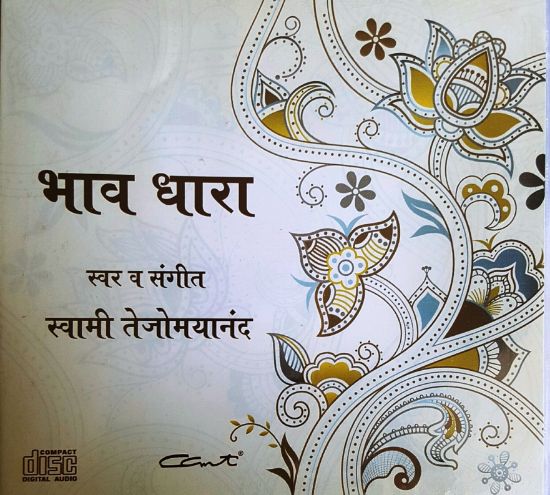 भाव धारा
स्वर व संगीत
स्वामी तेजोमयानंद
COMPACT
disc
DIGITAL AUDIO